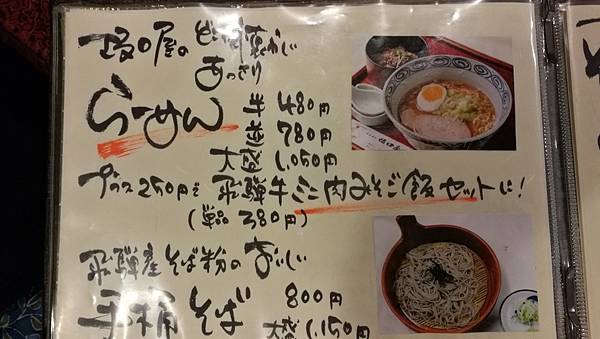 坂口屋の どこか懐かしい
あっさり
らーめん 半 480円
並 780円
大盛 1,050円
プラス250円で 飛騨牛ミニ肉みそご飯セットに!
(単品 380円)
飛騨産そば粉の おいしい
手桶そば 800円
大盛 1,150円